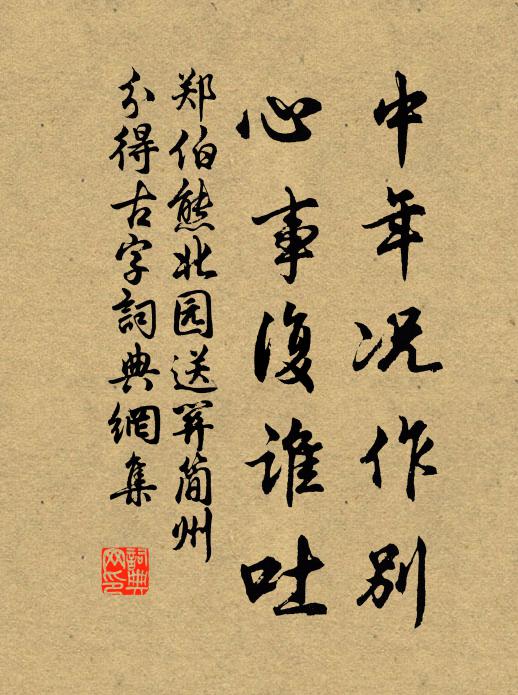 中年况作别
心事復谁吐
郑伯熊北园送羿简州
分得古字詞典網集
詞典网印